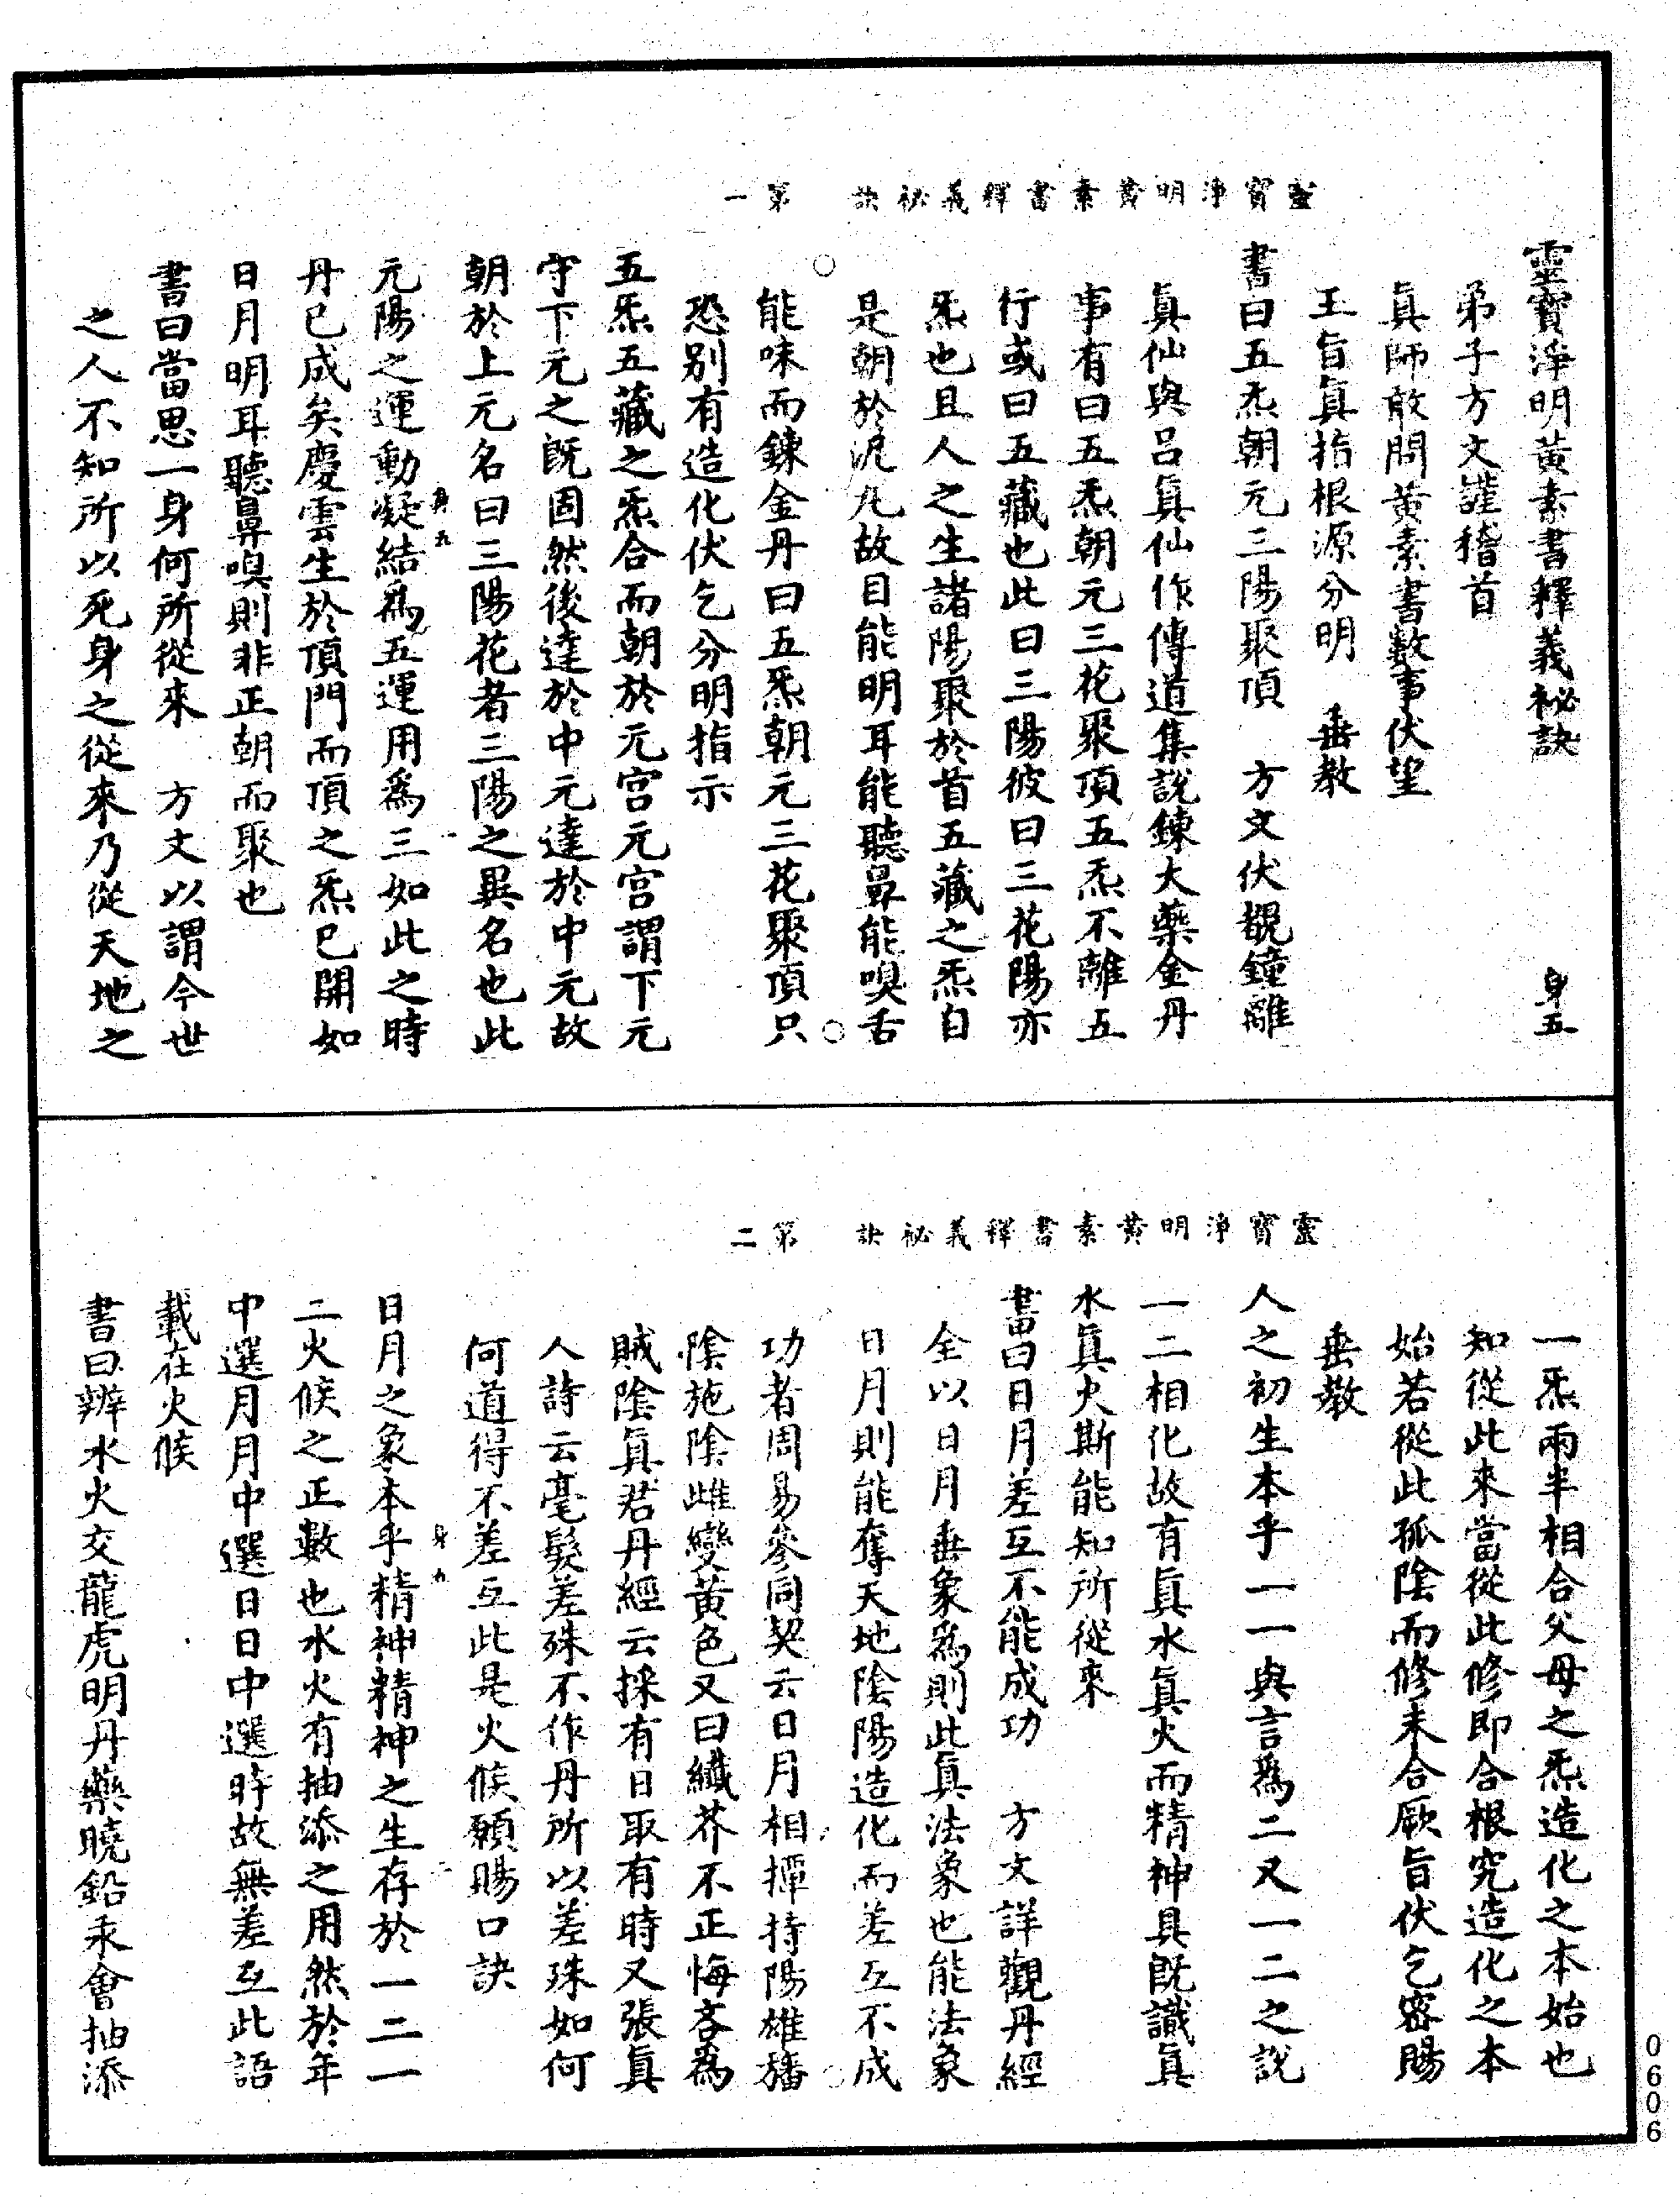 靈寶淨明黃素書釋義祕訣 第一
靈寶淨明黃素書釋義祕訣 身五
弟子方文謹稽首
眞師敢問黃素書數事伏望
王旨眞指根源分明 垂教
書曰五炁朝元三陽聚頂 方文伏覩鐘離
眞仙與呂眞仙作傳道集說鍊大藥金丹
事有曰五炁朝元三花聚頂五炁不離五
行或曰五藏也此曰三陽彼曰三花陽亦
炁也且人之生諸陽聚於首五藏之炁自
是朝於泥丸故目能明耳能聽鼻能嗅舌
能味而鍊金丹曰五炁朝元三花聚頂只
恐別有造化伏乞分明指示
五炁五藏之炁合而朝於元宮元宮謂下元
守下元之旣固然後達於中元達於中元故
朝於上元名曰三陽花者三陽之異名也此
元陽之運動凝結爲五運用爲三如此之時
身九
丹已成矣慶雲生於頂門而頂之炁已開如
日月明耳聽鼻嗅則非正朝而聚也
書曰當思一身何所從來 方文以謂今世
之人不知所以死身之從來乃從天地之
靈寶淨明黃素書釋義祕訣 第二
一炁兩半相合父母之炁造化之本始也
知從此來當從此修即合根究造化之本
始若從此孤陰而修未合厥旨伏乞密賜
垂教
人之初生本乎一一與言爲二又一二之說
一二相化故有眞水眞火而精神具旣識眞
水眞火斯能知所從來
書曰日月差互不能成功 方文詳觀丹經
全以日月垂象爲則此眞法象也能法象
日月則能奪天地陰陽造化而差互不成
功者周易參同契云日月相撢持陽雄播
陰施陰雌變黃色又曰纖芥不正悔吝爲
賊陰眞君丹經云採有日取有時又張眞
人詩云毫髮差殊不作丹所以差殊如何
何道得不差互此是火候願賜口訣
日月之象本乎精神精神之生存於一二一
身九
二火候之正數也水火有抽添之用然於年
中選月月中選日日中選時故無差互此語
載在火候
書曰辨水火交龍虎明丹藥曉鉛汞會抽添
0606